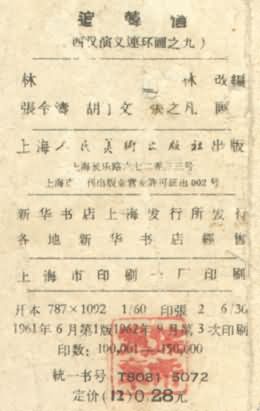 追韓信
西汉演义連环圖之九）
林 林 改編
張令濤 胡丁文 張之凡 圖
上海人民美術出版社出版
上海长乐路六七二弄三三号
上海 刊出版业营业許可証出002号
新华书店上海发行所发行
各地新华书店經售
上海市印刷一厂印刷
开本 787×1092 1/60 印張 2 6/30
1961年6月第1版1962年9月第3次印刷
印数：100,001—150,000
統一书号 T8081·5072
定价(12)0.28元